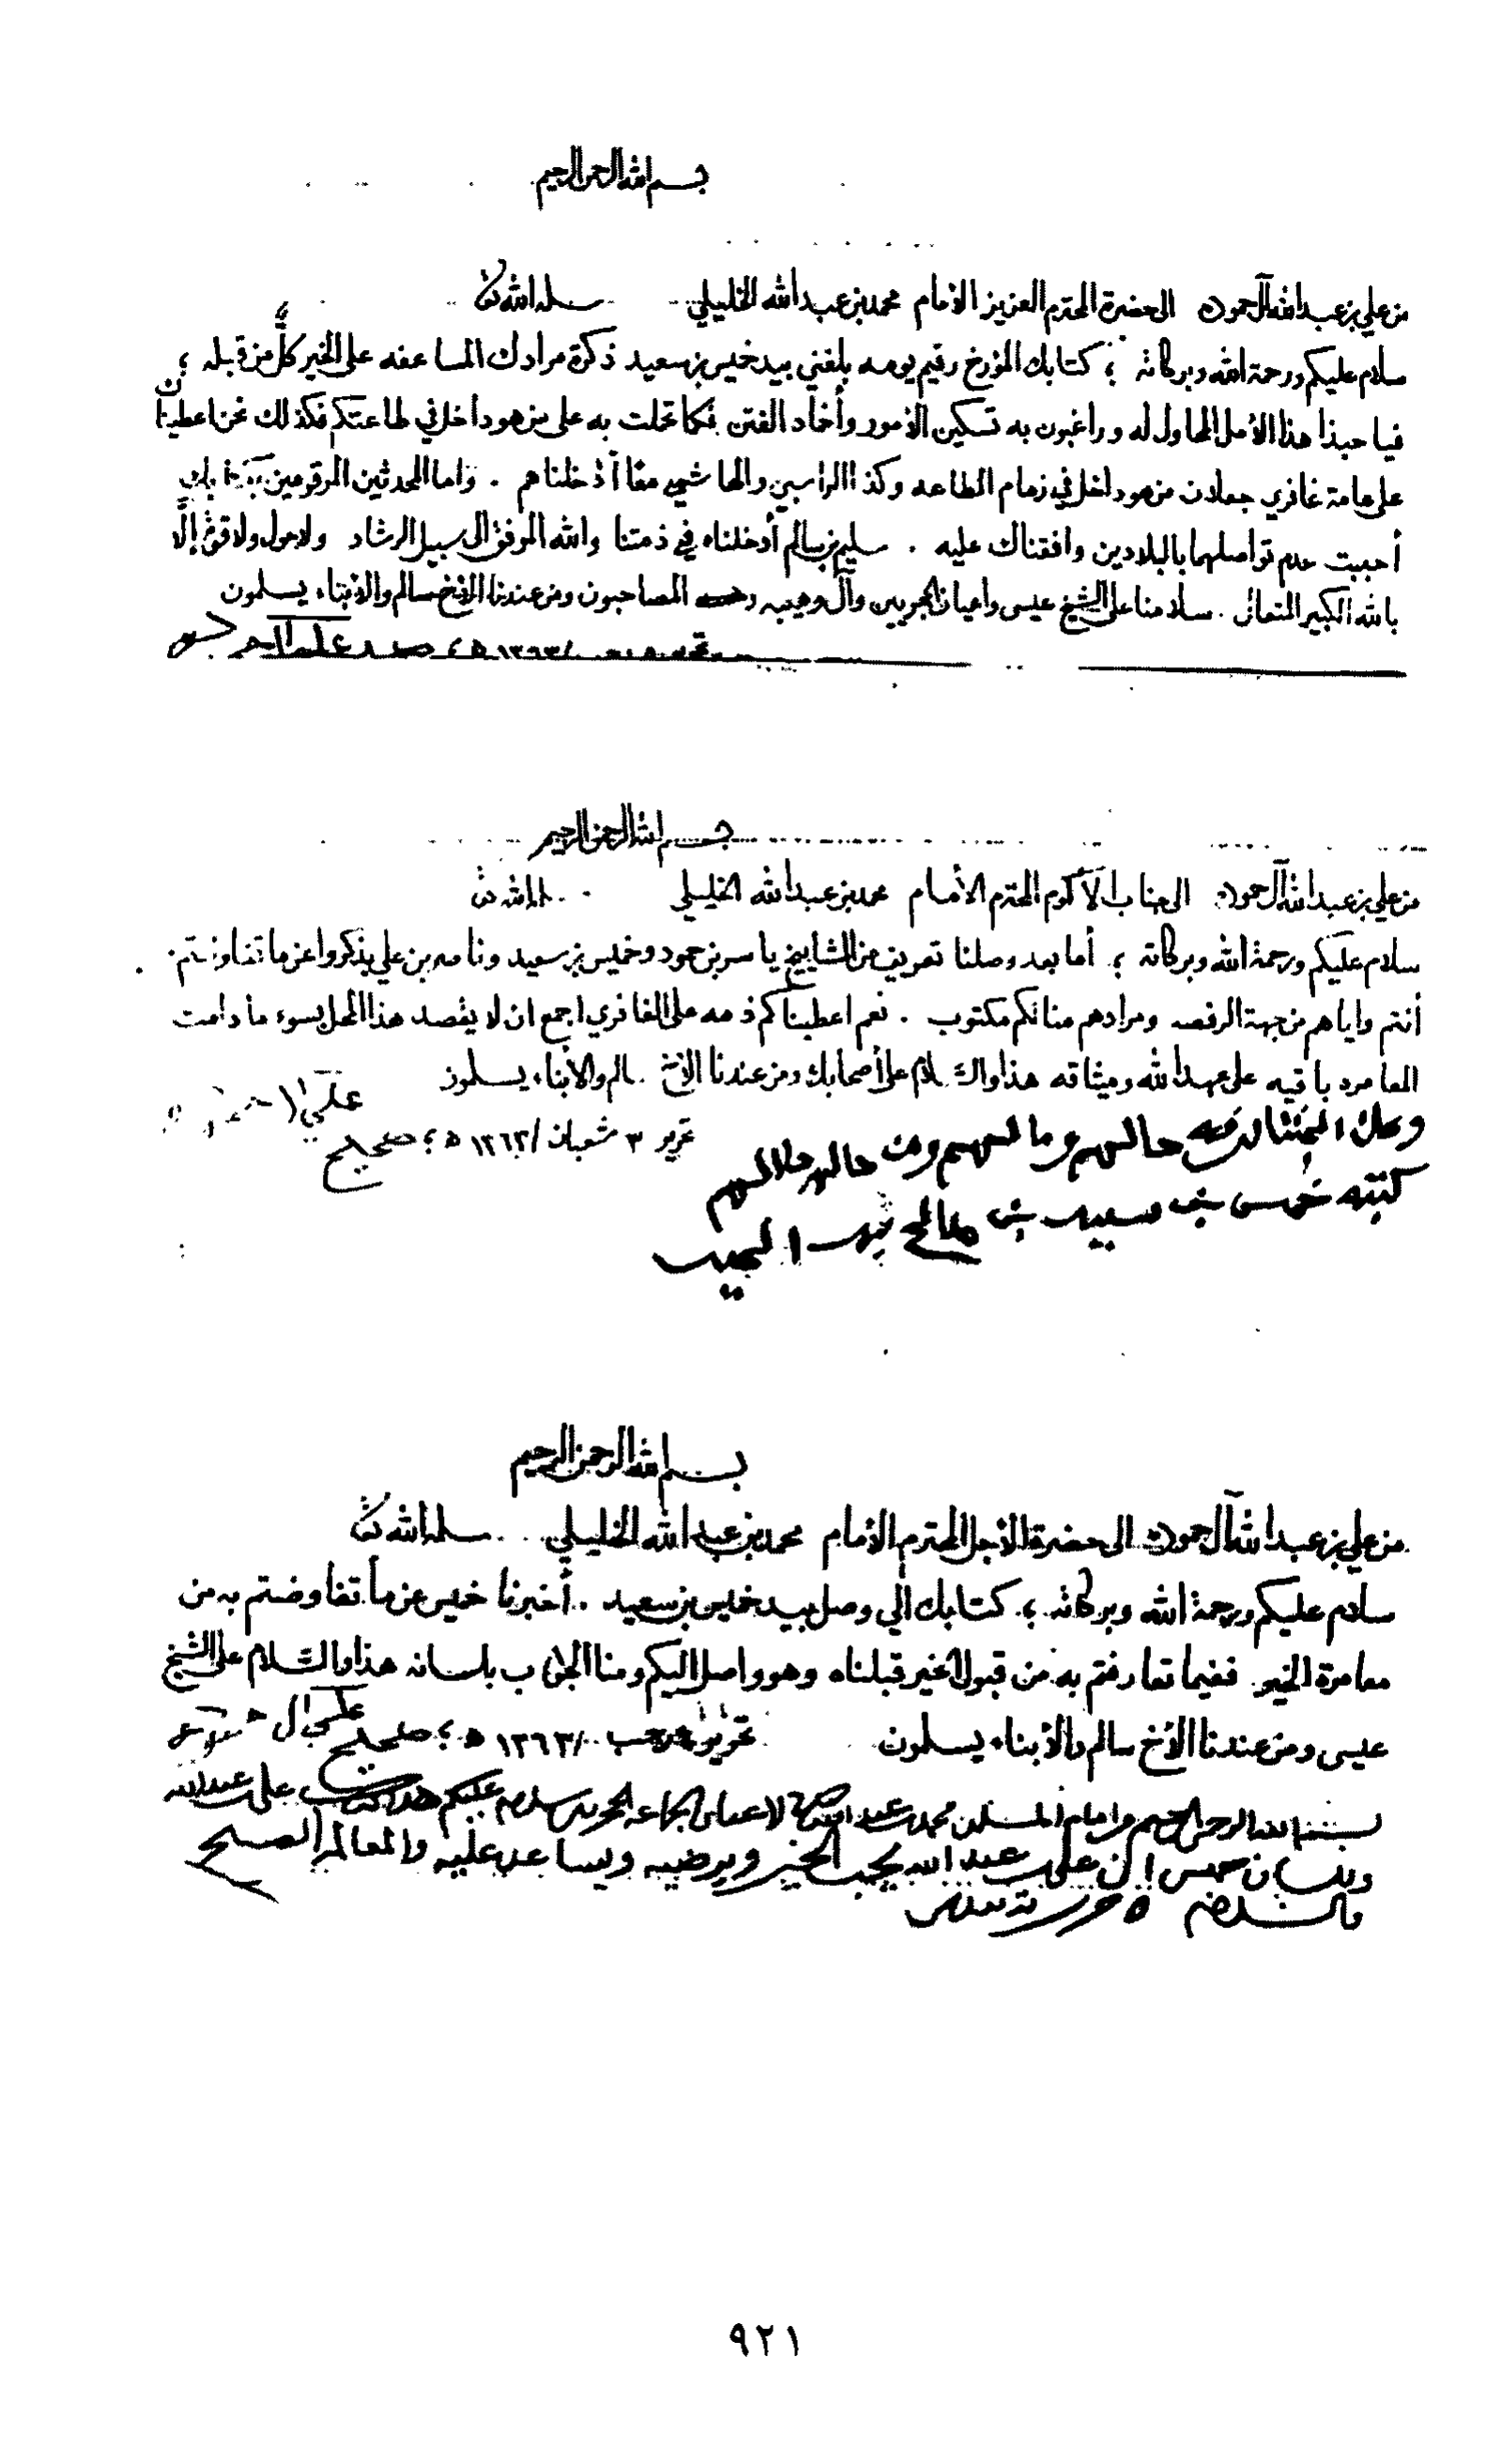 بسم الله الرحمن الرحيم
من علي بن عبدالله آل حموده الى حضرة المحترم العزيز الامام محمد بن عبدالله الخليلي سلمه الله تعالى
سلام عليكم ورحمة الله وبركاته ؛ كتابك المؤرخ رقيم يومه بلغني بيد خميس بن سعيد ذكرة مرادك المساعفه على الخير كلٌ من قبله ؛
فيا حبذا هذا الأمل المحاول له وراغبون به تسكين الأمور وأخماد الفتن فكما تحملت به على من هو داخل في طاعتكم فكذلك نحن اعطينا
على عامة غافري جعلان من هو داخل في زمام الطاعه وكذا الراسبي والهاشمي معنا أدخلناهم . واما المحدثين المرقومين بكتابك
أحببت عدم تواصلهما بالبلادين وافقناك عليه . سليم بن سالم أدخلناه في ذمتنا والله الموفق الى سبيل الرشاد ولا حول ولا قوة إلّا
بالله الكبير المتعال . سلامنا على الشيخ عيسى واعيان الحجريين وآل وهيبه المصاحبون ومن عندنا الأخ سالم والأبناء يسلمون
١٣٦٣ ه ؛ صحيح علي آل حموده
بسم الله الرحمن الرحيم
من علي بن عبدالله آل حموده الى جناب الأكرم المحترم الأمام محمد بن عبدالله الخليلي سلمه الله تعالى
سلام عليكم ورحمة الله وبركاته ؛ أما بعد وصلنا تعريف من المشايخ ياسر بن حمود وخميس بن سعيد وناصر بن علي يذكروا عن ما تفاوضتم
أنتم واياهم من جهة الرفصه ومرادهم منا لكم مكتوب . نعم اعطيناكم ذمه على الغافري اجمع ان لا يقصد هذا المحل بسوء ما دامت
المعامره باقيه على عهد الله وميثاقه هذا والسلام على أصحابك ومن عندنا الأخ سالم والأبناء يسلمون
تحرير ٣ شعبان / ١٣٦٣ ه ؛ صحيح علي آل حموده
حالهم وما لهم ومن حالهم حلالهم
كتبه خميس بن سعيد بن صالح بيده
بسم الله الرحمن الرحيم
من علي بن عبدالله آل حموده الى حضرة الأجل المحترم الأمام محمد بن عبدالله الخليلي سلمه الله تعالى
سلام عليكم ورحمة الله وبركاته ؛ كتابك الي وصل بيد خميس بن سعيد . أخبرنا خميس عن ما تفاوضتم به من
معامرة الخير فيما تعارفتم به من قبول الخير قبلناه وهو واصل اليكم ومنا الجواب بلسانه هذا والسلام على الشيخ
عيسى ومن عندنا الأخ سالم والأبناء يسلمون تحرير رجب / ١٣٦٣ ه ؛ صحيح علي آل حموده
بسم الله الرحمن الرحيم من امام المسلمين محمد بن عبدالله الى الجماعه الحجريين سلام عليكم هذا كتاب علي بن عبدالله
وبلسان خميس ان علي بن عبدالله يحب الخير ويرضيه ويساعد عليه والمعامر الصلح
والسلام
٩٢١